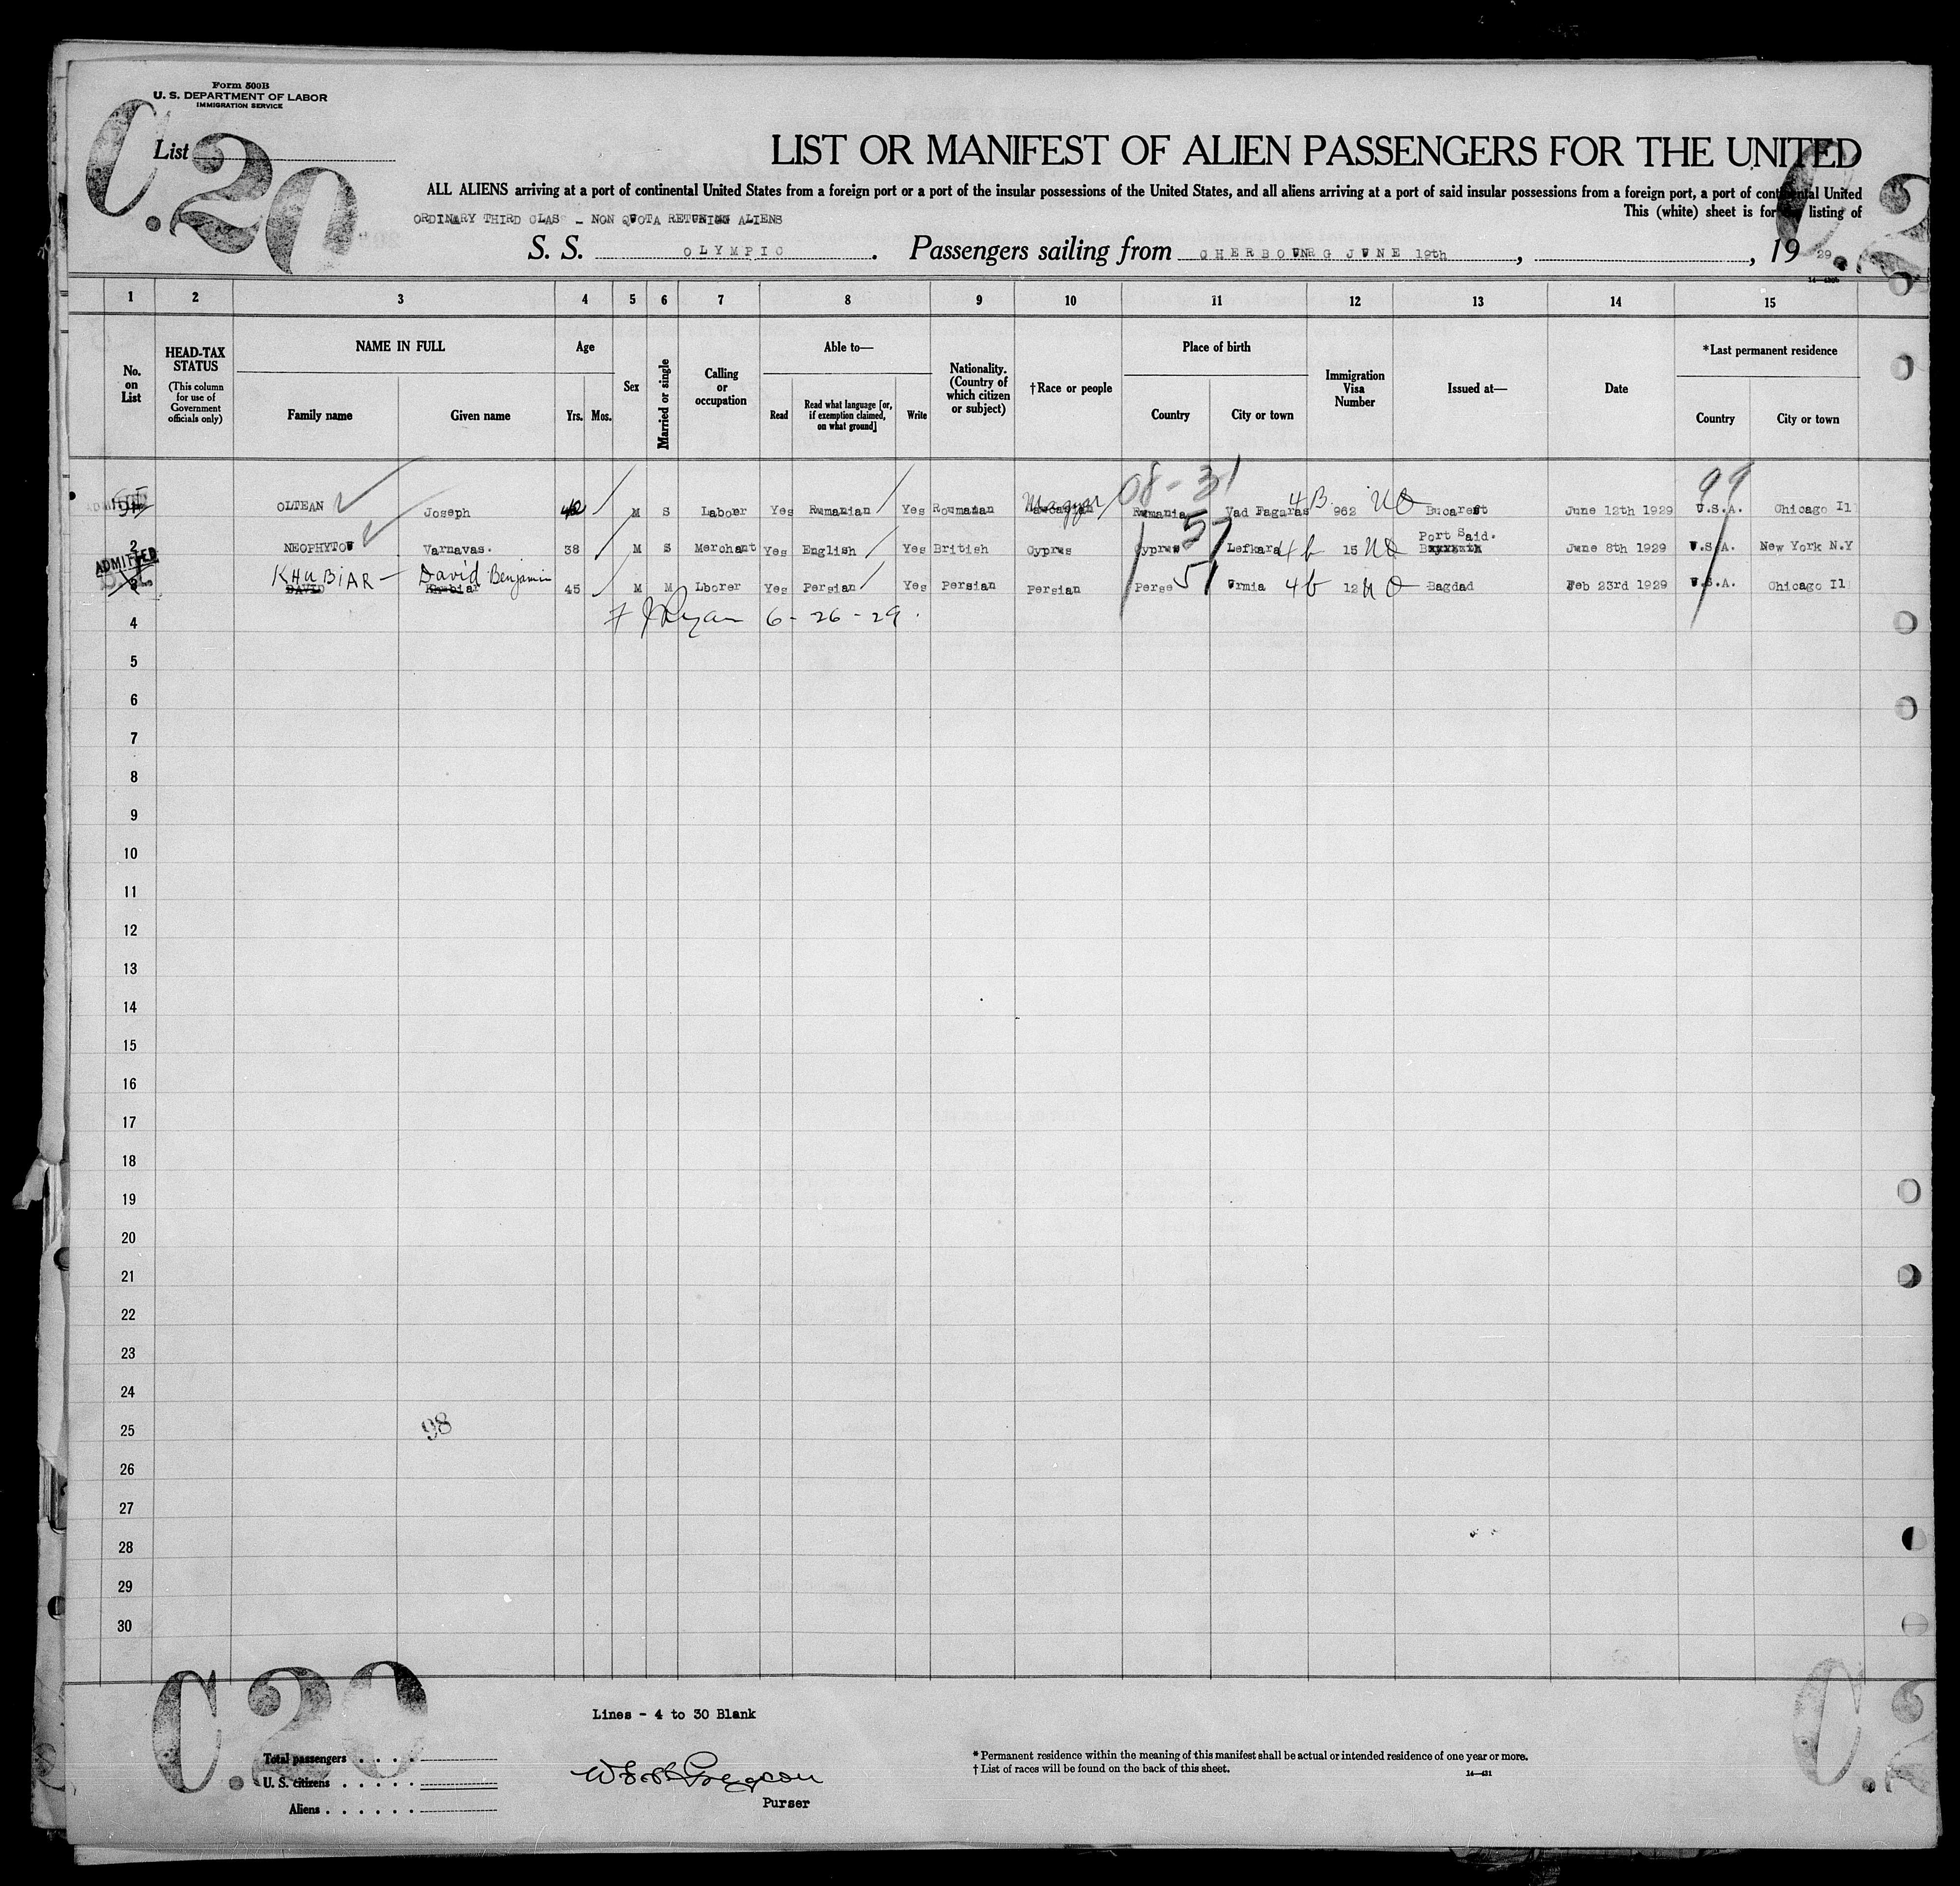 Form 500B
U. S. DEPARTMENT OF LABOR
IMMIGRATION SERVICE
C.20
List
LIST OR MANIFEST OF ALIEN PASSENGERS FOR THE UNITED
ALL ALIENS arriving at a port of continental United States from a foreign port or a port of the insular possessions of the United States, and all aliens arriving at a port of said insular possessions from a foreign port, a port of continental United
This (white) sheet is for the listing of
ORDINARY THIRD CLASS - NON QUOTA RETUNING ALIENS
S. S. OLYMPIC. Passengers sailing from CHERBOURG JUNE 19th, , 19 29.
1 2 3 4 5 6 7 8 9 10 11 12 13 14 15
No. on List
HEAD-TAX STATUS
(This column for use of Government officials only)
NAME IN FULL
Family name Given name
Age
Yrs. Mos.
Sex
Married or single
Calling or occupation
Able to—
Read Read what language [or, if exemption claimed, on what ground] Write
Nationality. (Country of which citizen or subject)
†Race or people
Place of birth
Country City or town
Immigration Visa Number
Issued at—
Date
*Last permanent residence
Country City or town
08-31 99
OLTEAN Joseph M S Laborer Yes Rumanian Yes Roumanian Magyar Rumania Vad Fagaras 4B. 962 Bucarest June 12th 1929 U.S.A. Chicago Il
2 NEOPHYTOU Varnavas. 38 M S Merchant Yes English Yes British Cyprus Cyprus 57 Lefkara 4b 15 Port Said. June 8th 1929 U.S.A. New York N.Y
ADMITTED
3 KHUBIAR DAVID David Benjamin Khubiar 45 M M Lborer Yes Persian Yes Persian Persian Perse 51 Urmia 4b 12 Bagdad Feb 23rd 1929 U.S.A. Chicago Il
4 F J Ryan 6-26-29.
5
6
7
8
9
10
11
12
13
14
15
16
17
18
19
20
21
22
23
24
25 98
26
27
28
29
30
C.20
Lines - 4 to 30 Blank
Total passengers
U. S. citizens
Aliens
Purser
* Permanent residence within the meaning of this manifest shall be actual or intended residence of one year or more.
† List of races will be found on the back of this sheet.
14—431